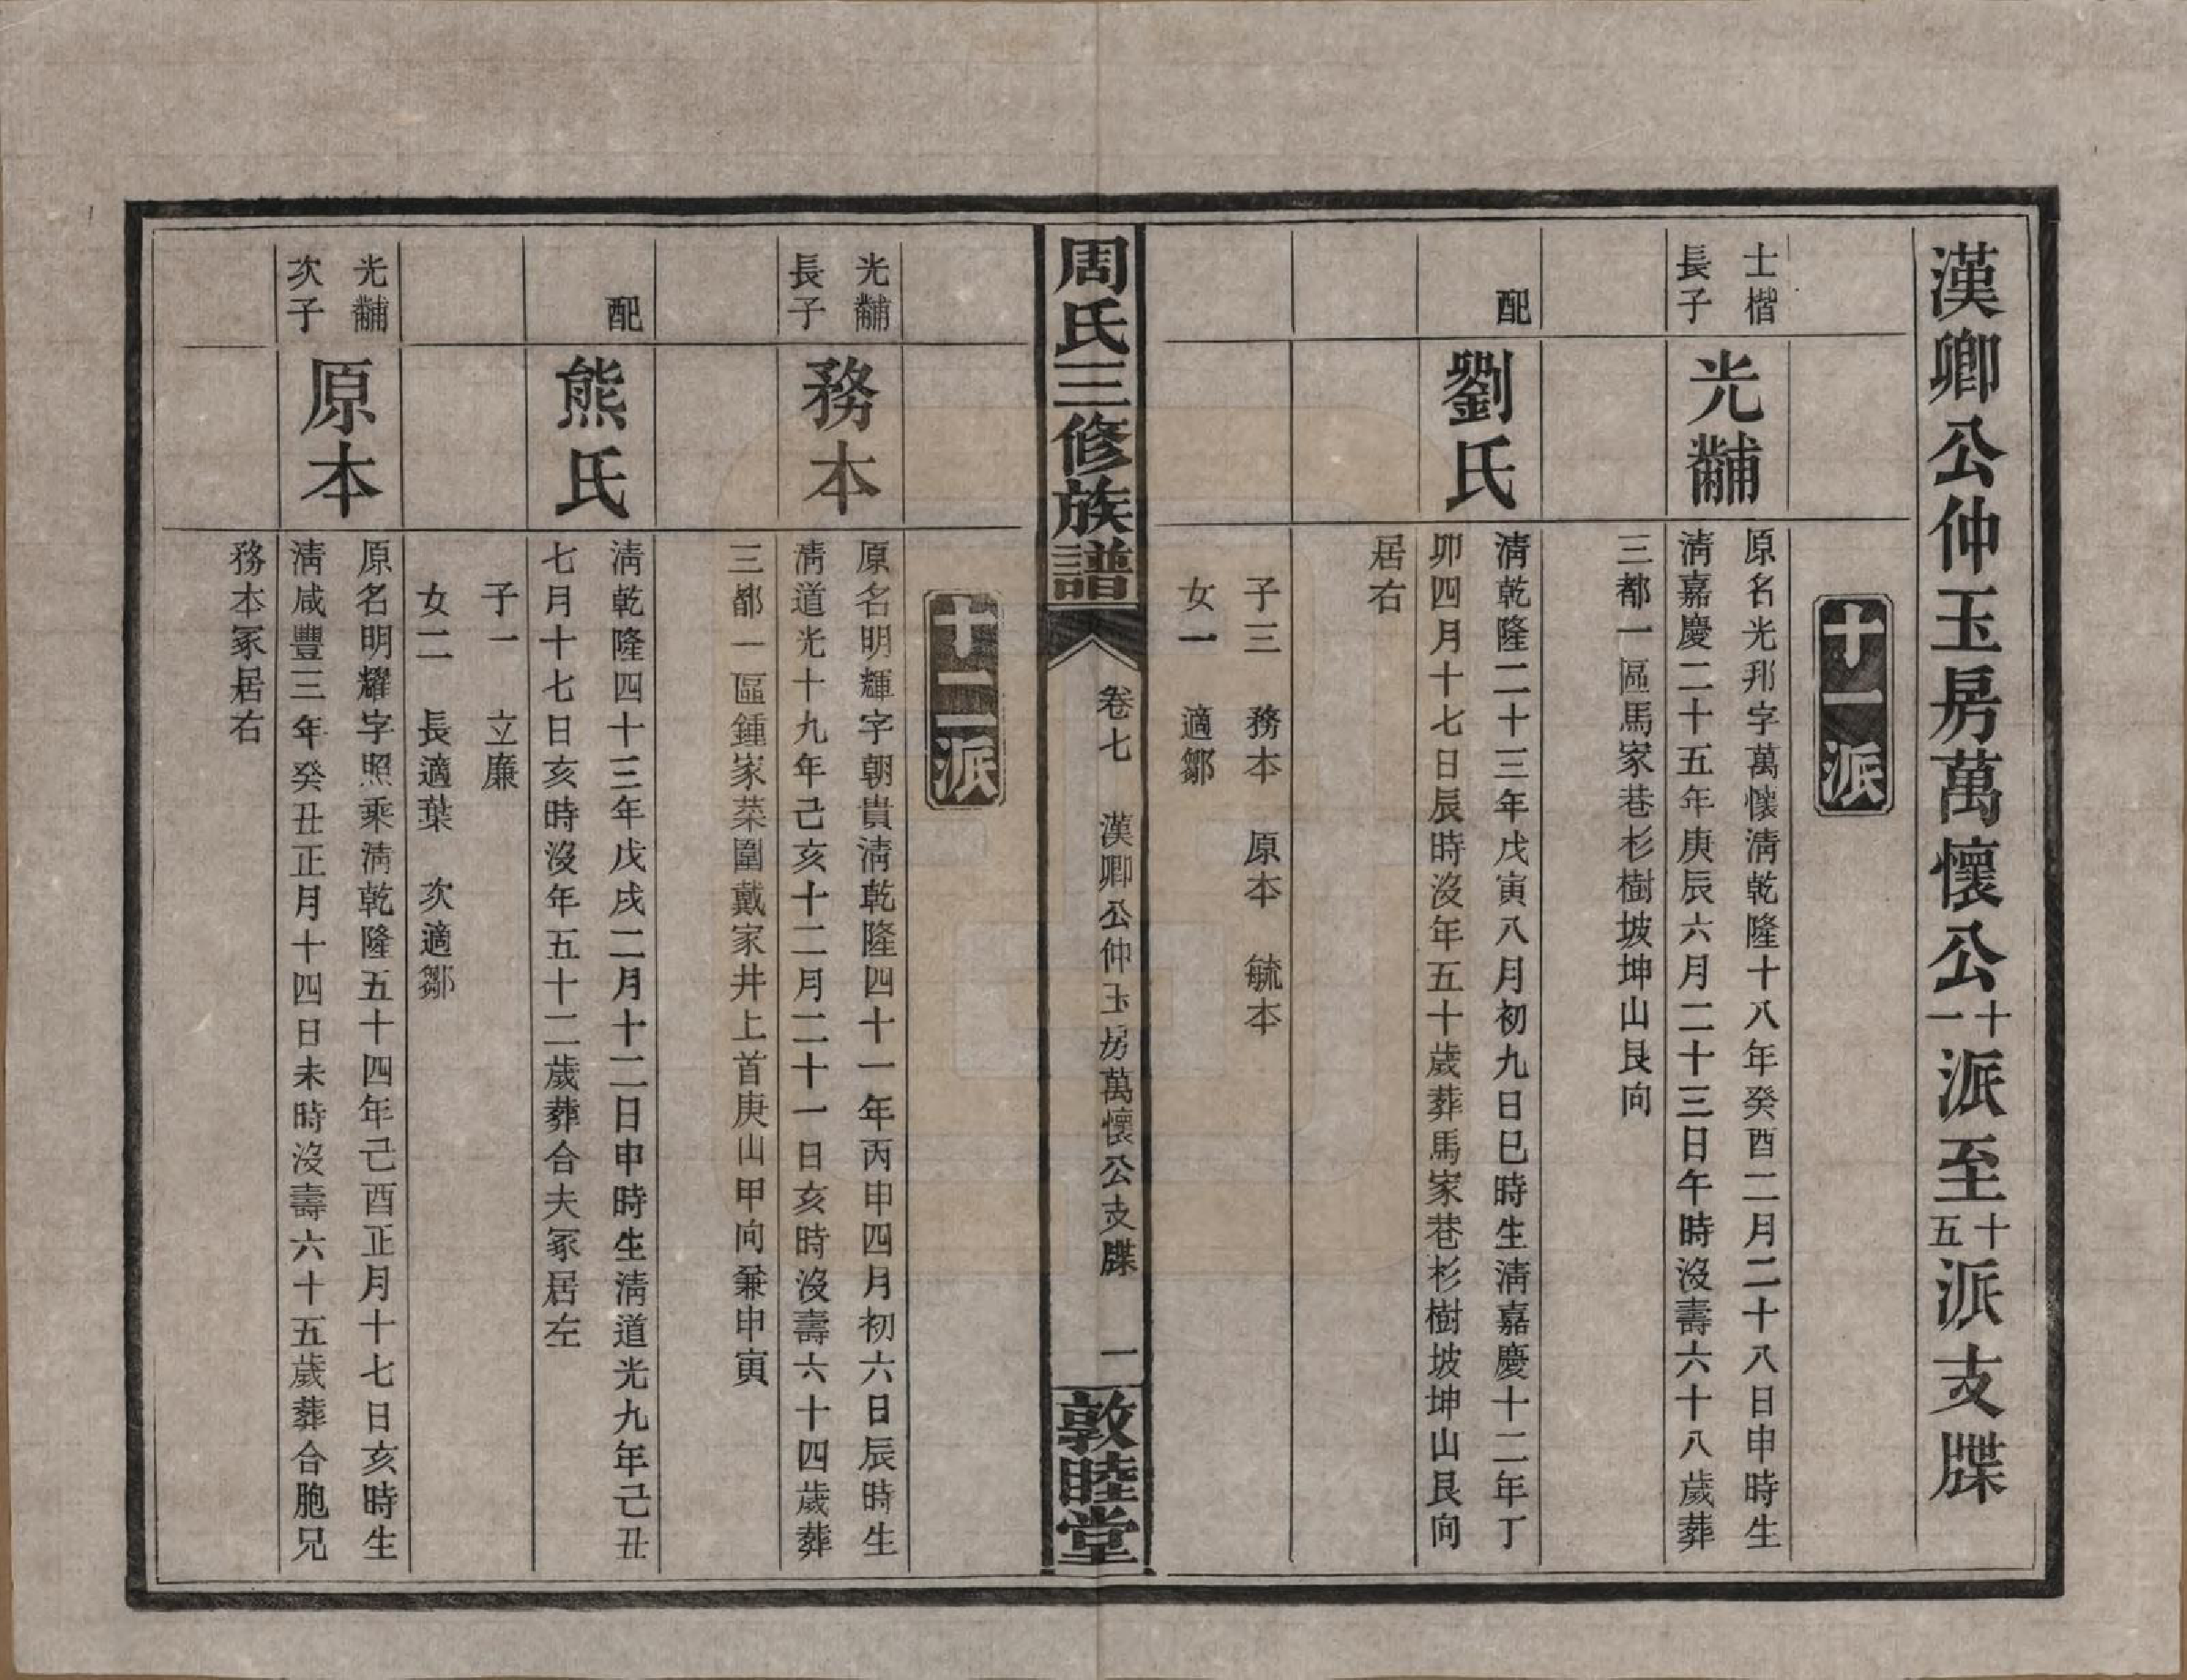 漢卿公仲玉房萬懷公十一派至十五派支牒
十一派
士楷長子
光黼
原名光邦字萬懷淸乾隆十八年癸酉二月二十八日申時生
淸嘉慶二十五年庚辰六月二十三日午時沒壽六十八歲葬
三都一區馬家巷杉樹坡坤山艮向
配
劉氏
淸乾隆二十三年戊寅八月初九日巳時生淸嘉慶十二年丁
卯四月十七日辰時沒年五十歲葬馬家巷杉樹坡坤山艮向
居右
子三 務本 原本 毓本
女一 適鄒
周氏三修族譜
卷七 漢卿公仲玉房萬懷公支牒 一
敦睦堂
十二派
光黼長子
務本
原名明輝字朝貴淸乾隆四十一年丙申四月初六日辰時生
淸道光十九年己亥十二月二十一日亥時沒壽六十四歲葬
三都一區鍾家菜園戴家井上首庚山甲向兼申寅
配
熊氏
淸乾隆四十三年戊戌二月十二日申時生淸道光九年己丑
七月十七日亥時沒年五十二歲葬合夫冢居左
子一 立廉
女二 長適葉 次適鄒
光黼次子
原本
原名明耀字照乘淸乾隆五十四年己酉正月十七日亥時生
淸咸豐三年癸丑正月十四日未時沒壽六十五歲葬合胞兄
務本冢居右